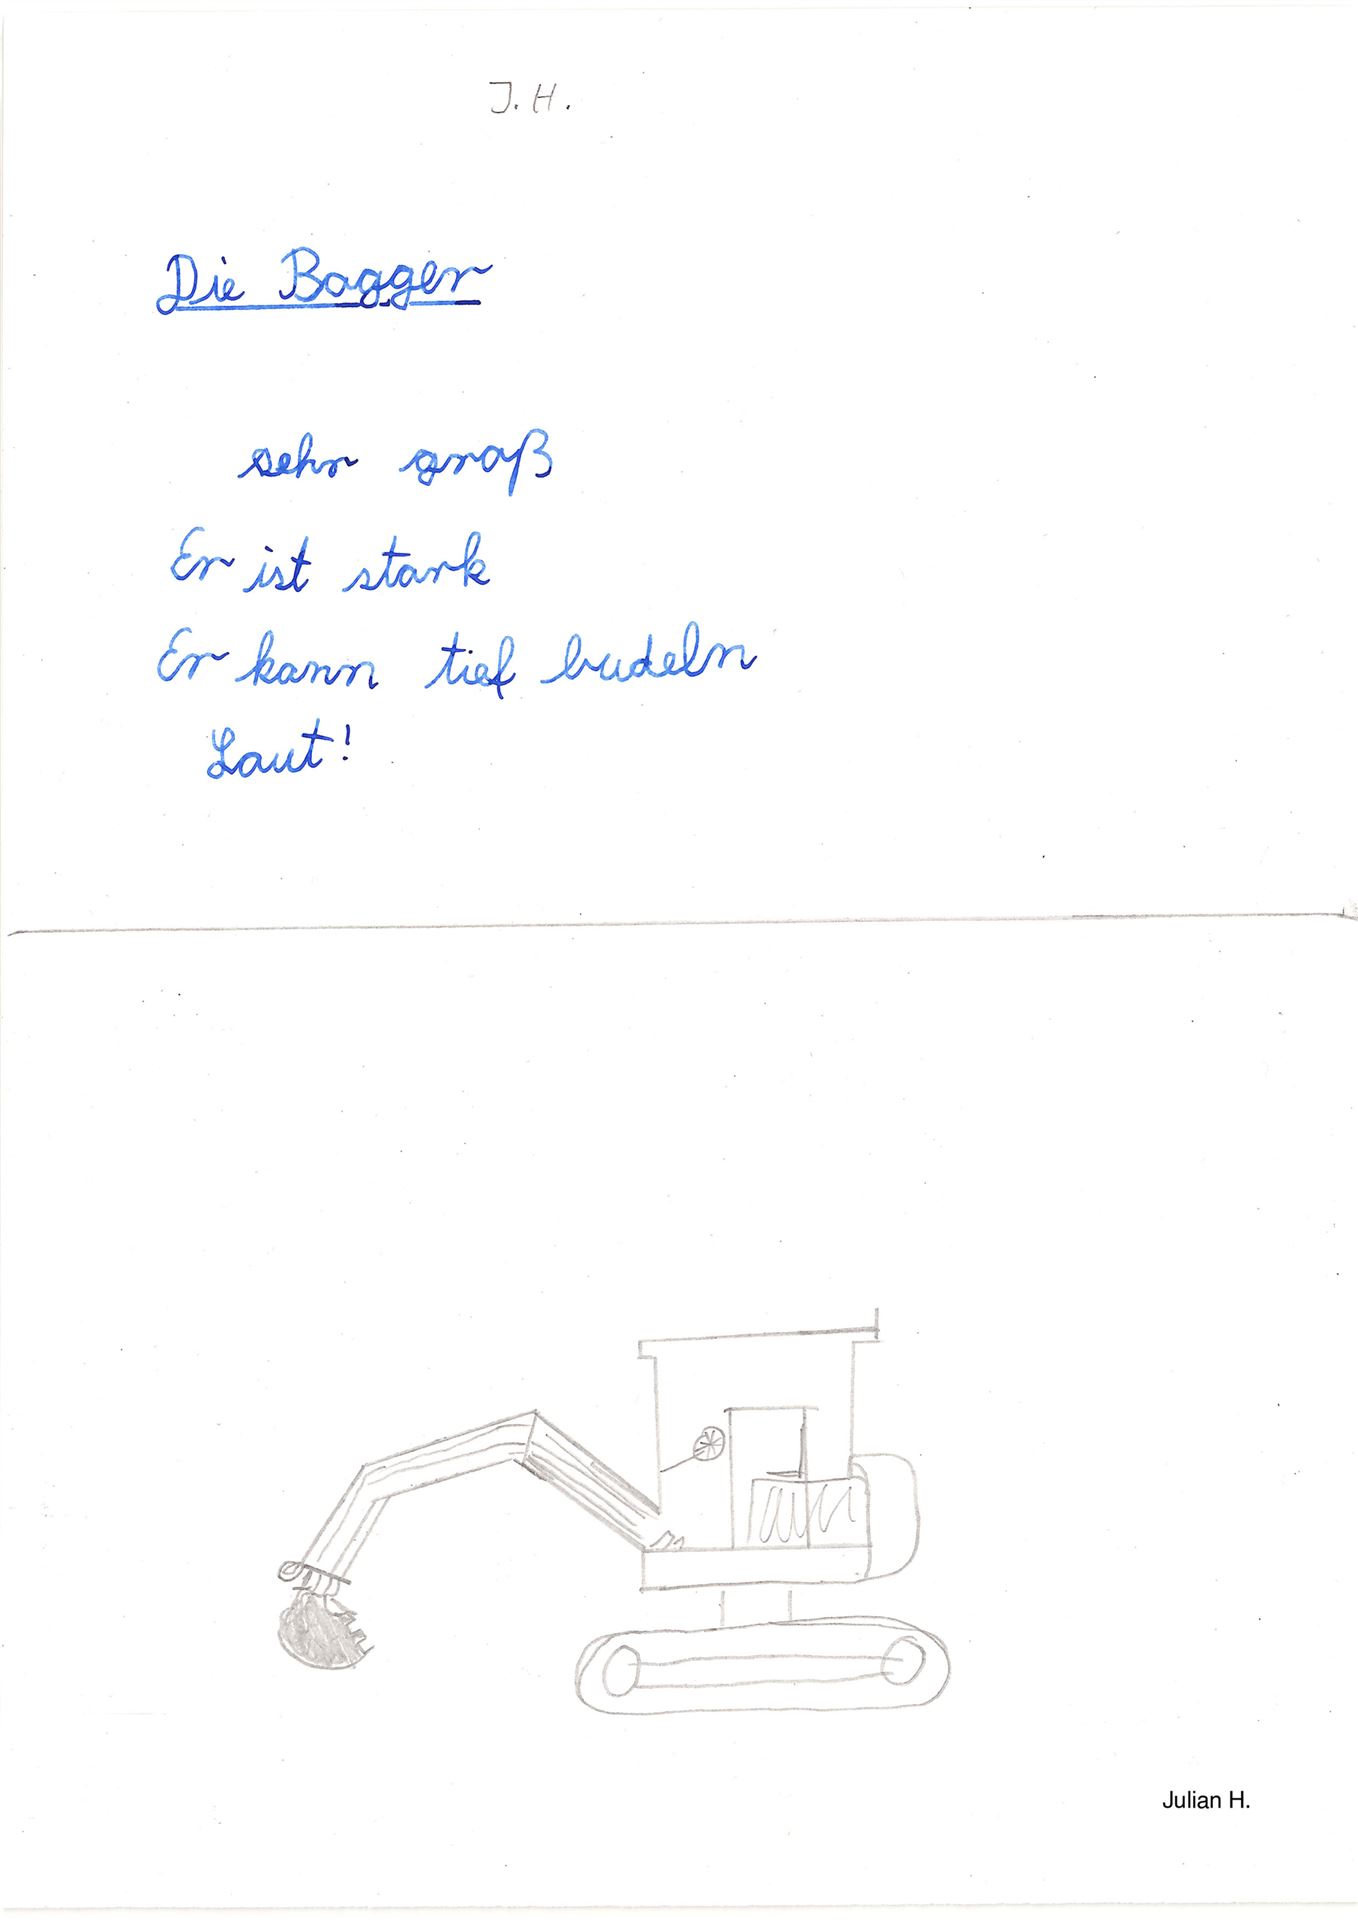 J. H.
Die Bagger
sehr groß
Er ist stark
Er kann tief budeln
Laut!
Julian H.